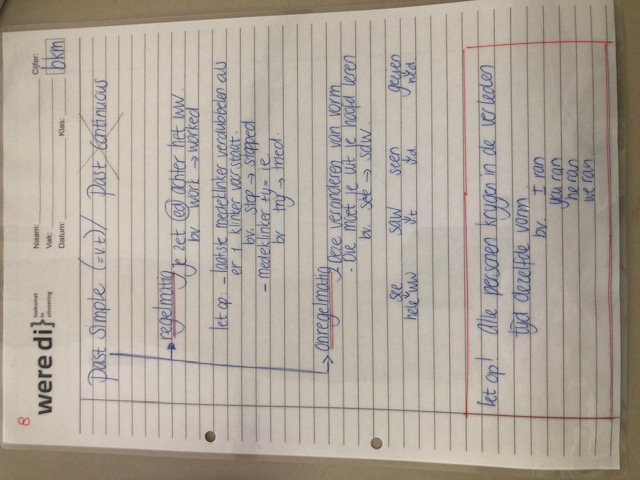 8
were di} toekomst in uitvoering
Naam:
Vak:
Datum:
Klas:
Cijfer:
bkm
Past Simple (=vt) / Past Continuous
→ regelmatig
Je zet ed achter het ww
bv. work → worked
let op - laatste medeklinker verdubbelen als
er 1 klinker voor staat.
bv. stop → stopped
- medeklinker + y = ie
bv try → tried.
→ onregelmatig
Deze veranderen van vorm
- Die moet je uit je hoofd leren
bv. see → saw.
see saw seen gezien
hele ww vt vd
let op! Alle personen krijgen in de verleden
tijd dezelfde vorm.
bv. I ran
you ran
he ran
we ran